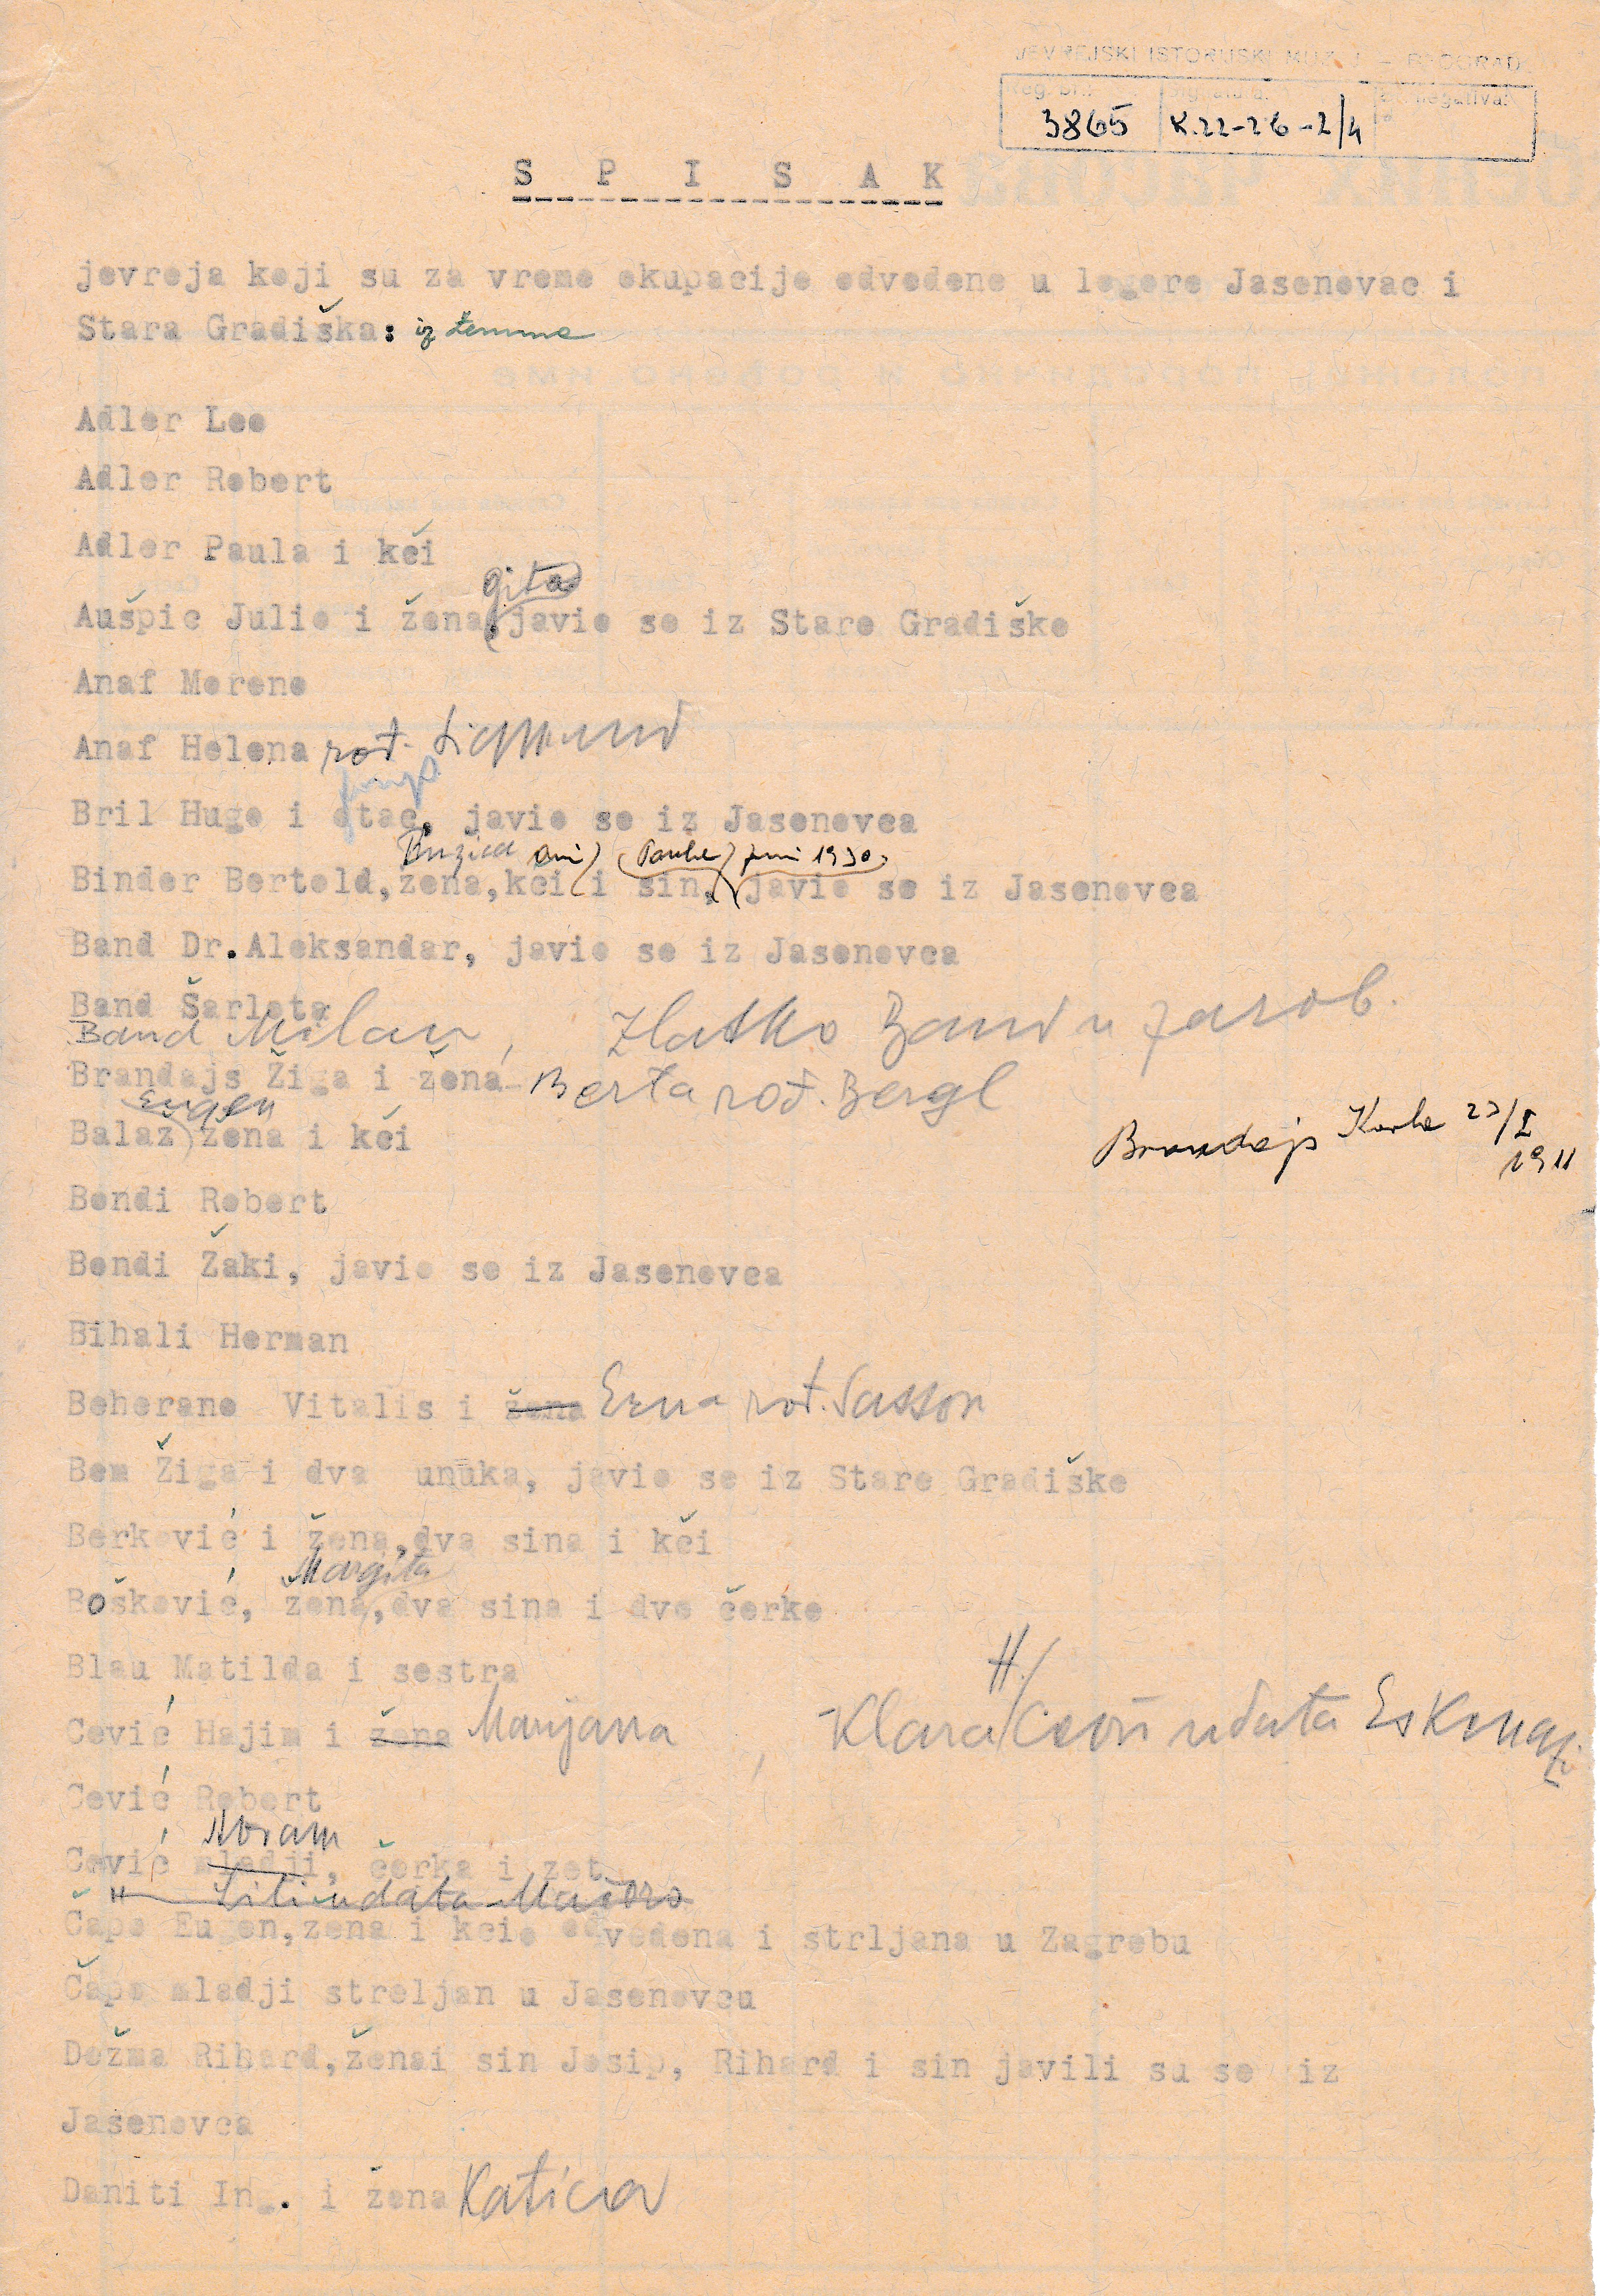 JEVREJSKI ISTORIJSKI MUZEJ – BEOGRAD
Reg. br. Signatura Br. negativa
3865 K.22-26-2/4
S P I S A K
jevreja koji su za vreme okupacije odvedene u logore Jasenovac i
Stara Gradiška: iz Zemuna
Adler Leo
Adler Robert
Adler Paula i kči
gita
Aušpic Julio i žena, javio se iz Stare Gradiške
Anaf Moreno
Anaf Helena rođ. Sigmund
Bril Hugo i otac, javio se iz Jasenovca
Ruzica
juni 1930
Binder Bertold, žena, kči i sin, javio se iz Jasenovca
Band Dr. Aleksandar, javio se iz Jasenovca
Band Šarlota
Band Milan, Zlatko Band u zarob.
Brandajs Žiga i žena - Berta rođ. Bergl
Eugen
Balaz žena i kči
Brandajs Karlo 23/I
1911
Bondi Robert
Bondi Žaki, javio se iz Jasenovca
Bihali Herman
Beherano Vitalis i žena Erna rođ. Sasson
Bem Žiga i dva unuka, javio se iz Stare Gradiške
Berković i žena, dva sina i kči
Margita
Bošković, žena, dva sina i dve čerke
Blau Matilda i sestra
H/
Cević Hajim i žena Marijana, Klara Cević udata Eskenazi
Cević Robert
Abram
Cević mladji, čerka i zet
" Lili udata
Čapo Eugen, zena i kcio odvedena i strljana u Zagrebu
Čapo mladji streljan u Jasenovcu
Dožma Rihard, ženai sin Josip, Rihard i sin javili su se iz
Jasenovca
Daniti Ing. i žena Katica